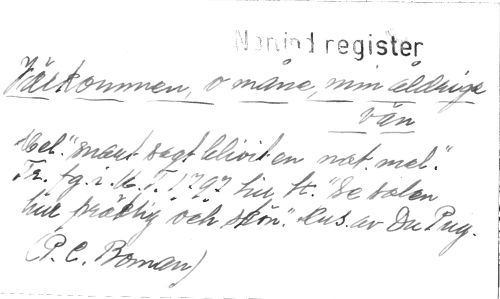 register
Välkommen, o måne, min åldrige
vän
Mel. "snart sagt blivit en nat. mel."
Tr. fg. i M. T. 1797 hit. "Se solen
hur präktig och skön." Mus. av Du Puy.
(P. C. Boman)